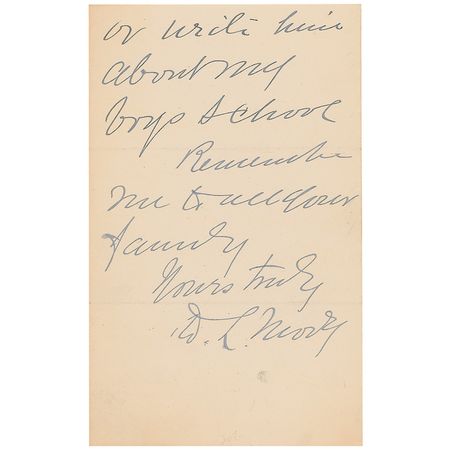 or write him
about my
boys school
Remember
me to all your
family
Yours truly
D. L. Moody